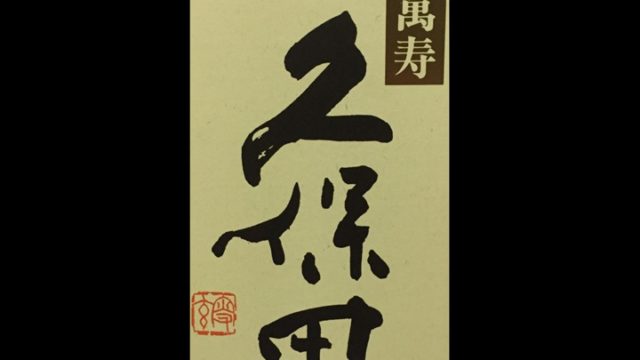 萬寿
久保田